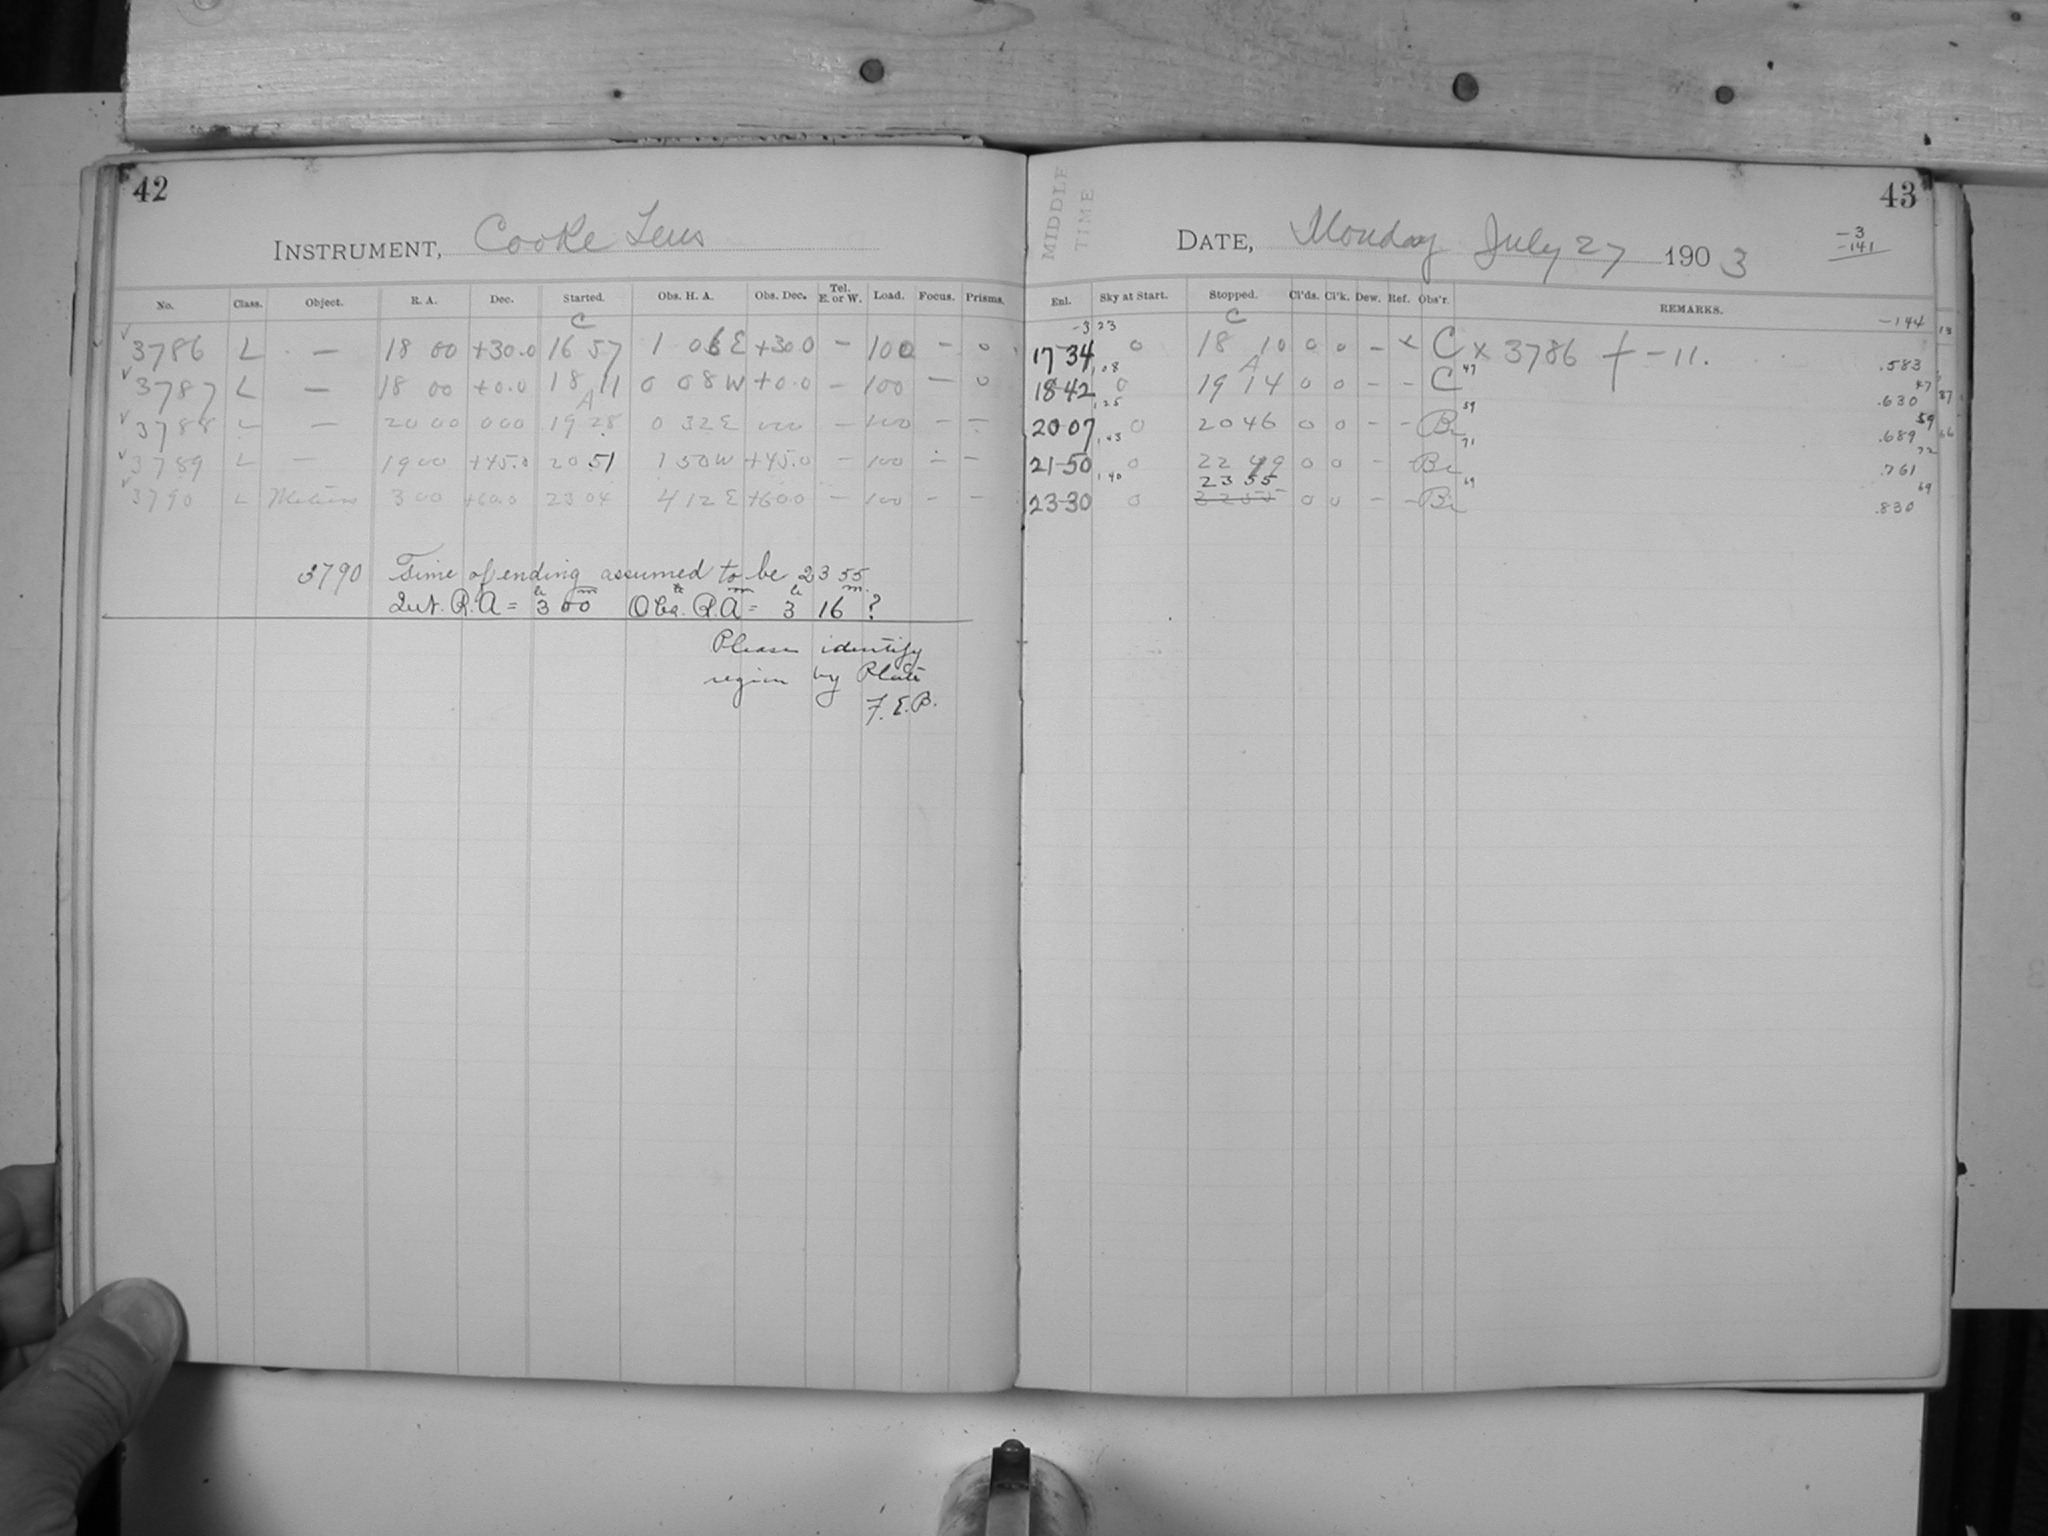 42
INSTRUMENT, Cooke Lens
No. Class. Object. R. A. Dec. Started. Obs. H. A. Obs. Dec. Tel. E. or W. Load. Focus. Prisms.
C
✓ 3786 L — 18 00 +30.0 16 57 1 03 E +30 0 — 100 — 0
✓ 3787 L — 18 00 +0.0 18 11 0 08 W +0.0 — 100 — 0
A
✓ 3788 L — 20 00 0 00 19 28 0 32 E — 100 — —
✓ 3789 L — 19 00 +45.0 20 51 1 50 W +45.0 — 100 — —
✓ 3790 L Meteors 3 00 +60.0 23 04 4 12 E +60 0 — 100 — —
3790 Time of ending assumed to be 23 55
Int. R.A = 3 h 00 m Obs. R.A = 3 h 16 m ?
Please identify
region by Plate
F. E. B.
MIDDLE
TIME
43
DATE, Monday July 27 1903
-3
-141
Enl. Sky at Start. Stopped. Cl'ds. Cl'k. Dew. Ref. Obs'r. REMARKS.
-144 13
-3 23 C
17 34 0 18 10 0 0 — x C x 3786 f -11. .583
1,08 A 47
18 42 0 19 14 0 0 — — C .630 47 37
1,25 59
20 07 0 20 46 0 0 — — Br .689 59 66
1,43 71
21-50 0 22 49 0 0 — — Br .761 72
1,40 23 55 69
23-30 0 0 0 — — Br .830 69